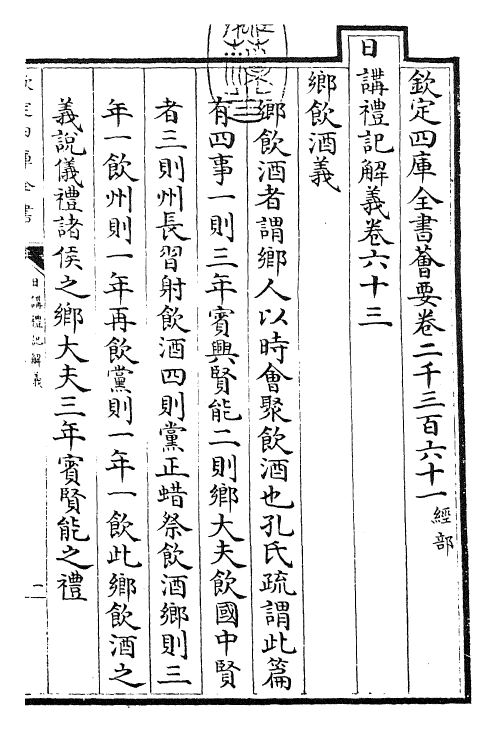 欽定四庫全書薈要卷二千三百六十一 經部
日講禮記解義卷六十三
鄉飲酒義
鄉飲酒者謂鄉人以時會聚飲酒也孔氏疏謂此篇
有四事一則三年賓興賢能二則鄉大夫飲國中賢
者三則州長習射飲酒四則黨正蜡祭飲酒鄉則三
年一飲州則一年再飲黨則一年一飲此鄉飲酒之
義說儀禮諸侯之鄉大夫三年賓賢能之禮
欽定四庫全書
日講禮記解義